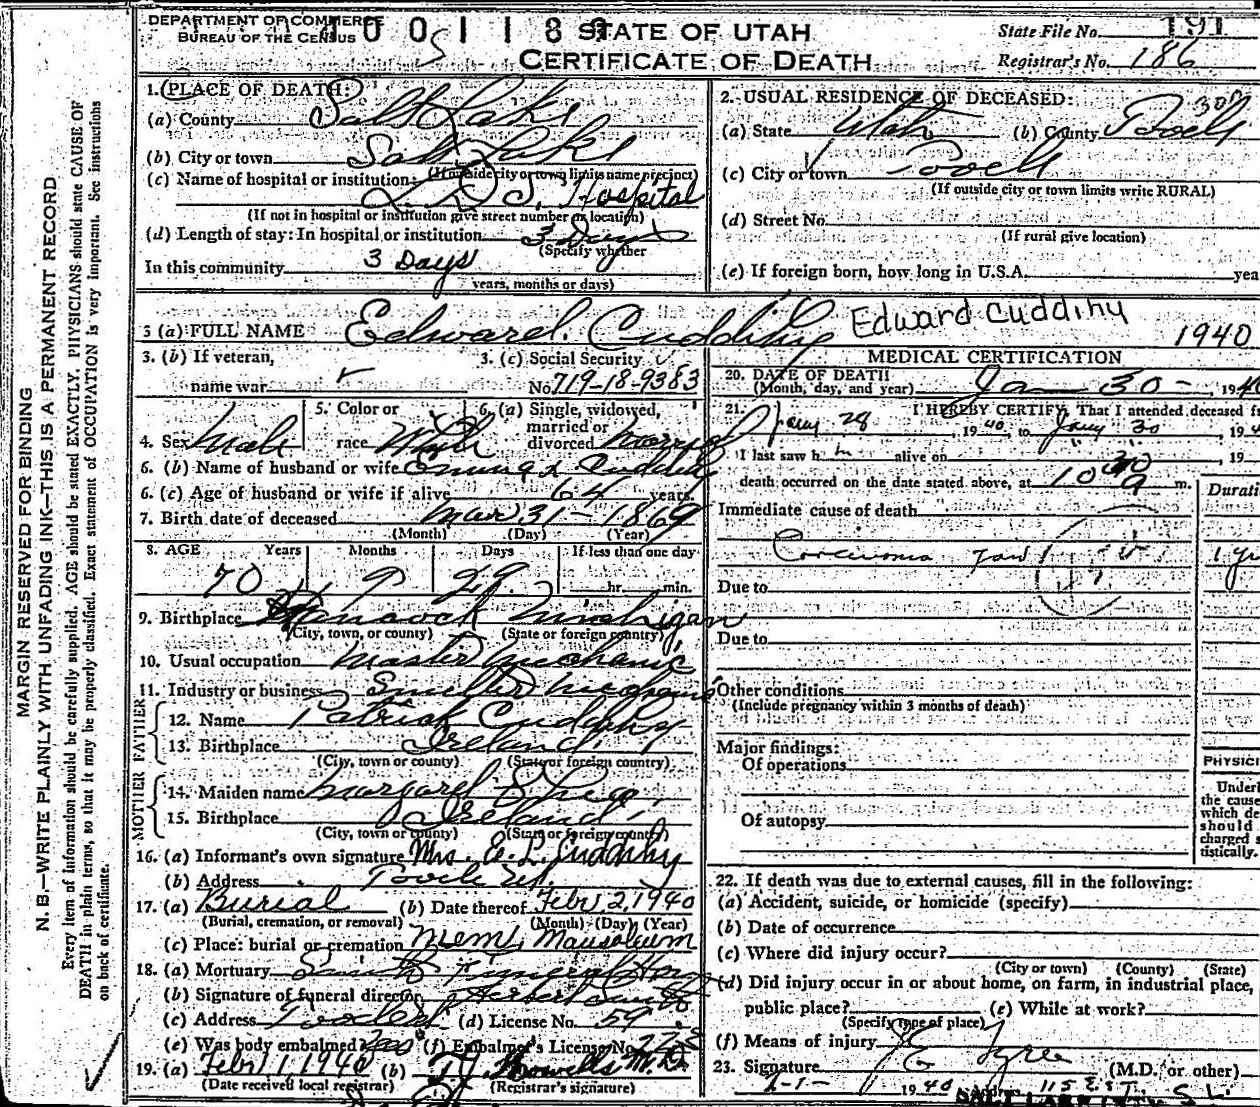 DEPARTMENT OF COMMERCE
BUREAU OF THE CENSUS
STATE OF UTAH
CERTIFICATE OF DEATH
State File No. 191
Registrar's No. 186
MARGIN RESERVED FOR BINDING
N. B.—WRITE PLAINLY WITH UNFADING INK—THIS IS A PERMANENT RECORD
Every item of information should be carefully supplied. AGE should be stated EXACTLY. PHYSICIANS should state CAUSE OF
DEATH in plain terms, so that it may be properly classified. Exact statement of OCCUPATION is very important. See instructions
on back of certificate.
1. PLACE OF DEATH:
(a) County Salt Lake
(b) City or town Salt Lake
(If outside city or town limits name precinct)
(c) Name of hospital or institution:
L. D. S. Hospital
(If not in hospital or institution give street number or location)
(d) Length of stay: In hospital or institution 3 Days
(Specify whether
In this community 3 Days
years, months or days)
2. USUAL RESIDENCE OF DECEASED:
(a) State Utah (b) County
(c) City or town
(If outside city or town limits write RURAL)
(d) Street No.
(If rural give location)
(e) If foreign born, how long in U.S.A. yea
3 (a) FULL NAME Edward Cuddihy Edward Cuddihy
1940
3. (b) If veteran,
name war
3. (c) Social Security
No. 719-18-9383
4. Sex Male
5. Color or
race White
6. (a) Single, widowed,
married or
divorced married
6. (b) Name of husband or wife Cuddihy
6. (c) Age of husband or wife if alive 64 years.
7. Birth date of deceased Mar 31 - 1869
(Month) (Day) (Year)
8. AGE Years Months Days If less than one day
70 9 29 hr. min.
9. Birthplace Hancock Michigan
(City, town, or county) (State or foreign country)
10. Usual occupation Master Mechanic
11. Industry or business Smelter
FATHER
12. Name Patrick Cuddihy
13. Birthplace Ireland
(City, town or county) (State or foreign country)
MOTHER
14. Maiden name Margaret
15. Birthplace Ireland
(City, town or county) (State or foreign country)
16. (a) Informant's own signature Mrs. E. L. Cuddihy
(b) Address Tooele Utah
17. (a) Burial (b) Date thereof Feb 2, 1940
(Burial, cremation, or removal) (Month) (Day) (Year)
(c) Place: burial or cremation Mem. Mausoleum
18. (a) Mortuary Funeral Home
(b) Signature of funeral director
(c) Address Tooele (d) License No. 59
(e) Was body embalmed? Yes (f) Embalmer's License No.
19. (a) Feb 1, 1940 (b) M.D.
(Date received local registrar) (Registrar's signature)
MEDICAL CERTIFICATION
20. DATE OF DEATH
(Month, day, and year) Jan 30 - , 194
21. I HEREBY CERTIFY, That I attended deceased f
Jany 28, 1940, to Jany 30, 19
I last saw h m alive on " 30, 19
death occurred on the date stated above, at 10 m.
Durati
Immediate cause of death
Carcinoma Jaw 1 yr
Due to
Due to
Other conditions
(Include pregnancy within 3 months of death)
Major findings:
Of operations
Of autopsy
PHYSICI
Underl
the cause
which de
should
charged s
tistically.
22. If death was due to external causes, fill in the following:
(a) Accident, suicide, or homicide (specify)
(b) Date of occurrence
(c) Where did injury occur?
(City or town) (County) (State)
(d) Did injury occur in or about home, on farm, in industrial place,
public place? (e) While at work?
(Specify type of place)
(f) Means of injury
23. Signature Tyree (M.D. or other)
2-1- 1940